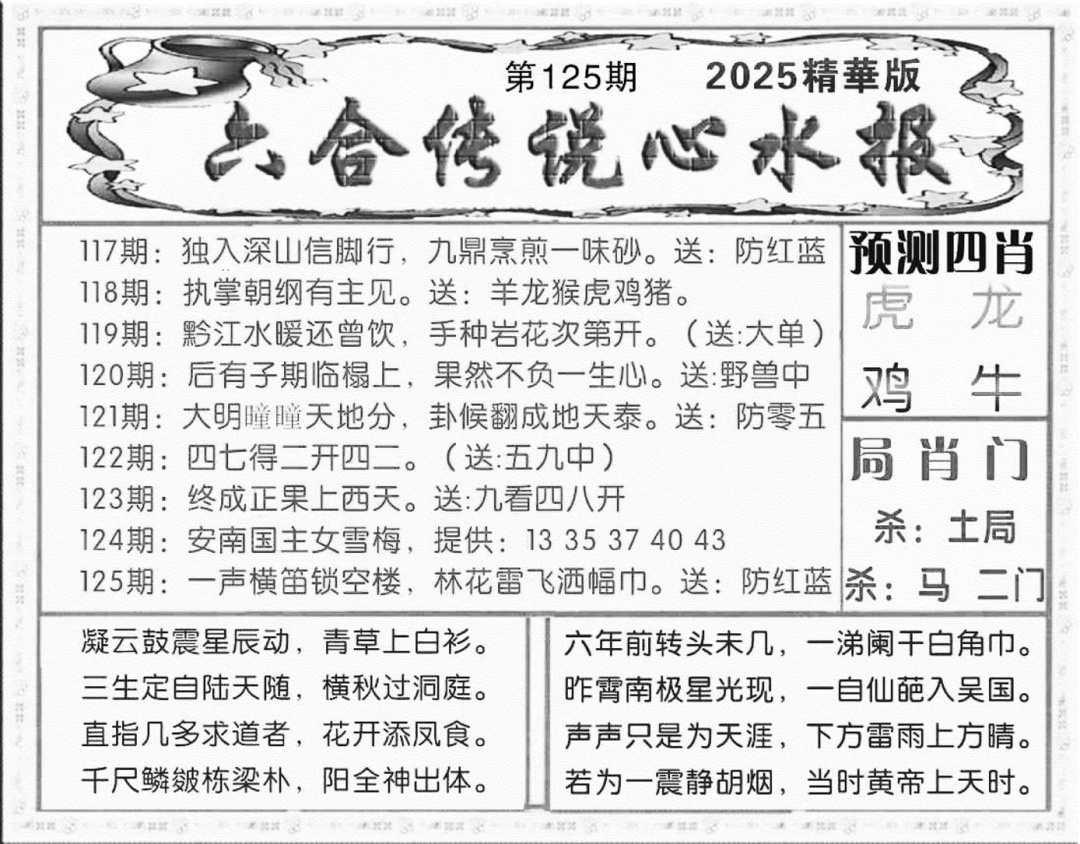 第125期 2025精華版
六合传说心水报
117期：独入深山信脚行，九鼎烹煎一味砂。送：防红蓝
118期：执掌朝纲有主见。送：羊龙猴虎鸡猪。
119期：黔江水暖还曾饮，手种岩花次第开。（送:大单）
120期：后有子期临榻上，果然不负一生心。送:野兽中
121期：大明曈曈天地分，卦候翻成地天泰。送：防零五
122期：四七得二开四二。（送:五九中）
123期：终成正果上西天。送:九看四八开
124期：安南国主女雪梅，提供：13 35 37 40 43
125期：一声横笛锁空楼，林花雷飞洒幅巾。送：防红蓝
预测四肖
虎 龙
鸡 牛
局肖门
杀：土局
杀：马 二门
凝云鼓震星辰动，青草上白衫。
三生定自陆天随，横秋过洞庭。
直指几多求道者，花开添凤食。
千尺鳞皴栋梁朴，阳全神出体。
六年前转头未几，一涕阑干白角巾。
昨霄南极星光现，一自仙葩入吴国。
声声只是为天涯，下方雷雨上方晴。
若为一震静胡烟，当时黄帝上天时。